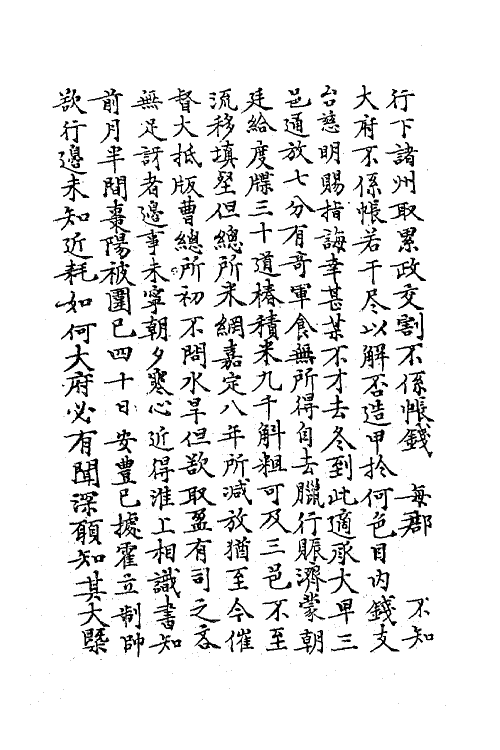 行下諸州取累政交割不係帳錢　每郡　不知
大府不係帳若干尽以解否造甲於何色目内錢支
台慈明賜指誨幸甚某不才去冬到此適承大旱三
邑通放七分有奇軍食無所得自去臘行賑濟蒙朝
廷給度牒三十道樁積米九千斛粗可及三邑不至
流移填壑但總所米綱嘉定八年所減放猶至今催
督大抵版曹總所初不問水旱但欲取盈有司之吝
無足訝者邊事未寧朝夕寒心近得淮上相識書知
前月半間棗陽被圍已四十日安豐已據霍立制帥
欲行邊未知近耗如何大府必有聞深願知其大槩